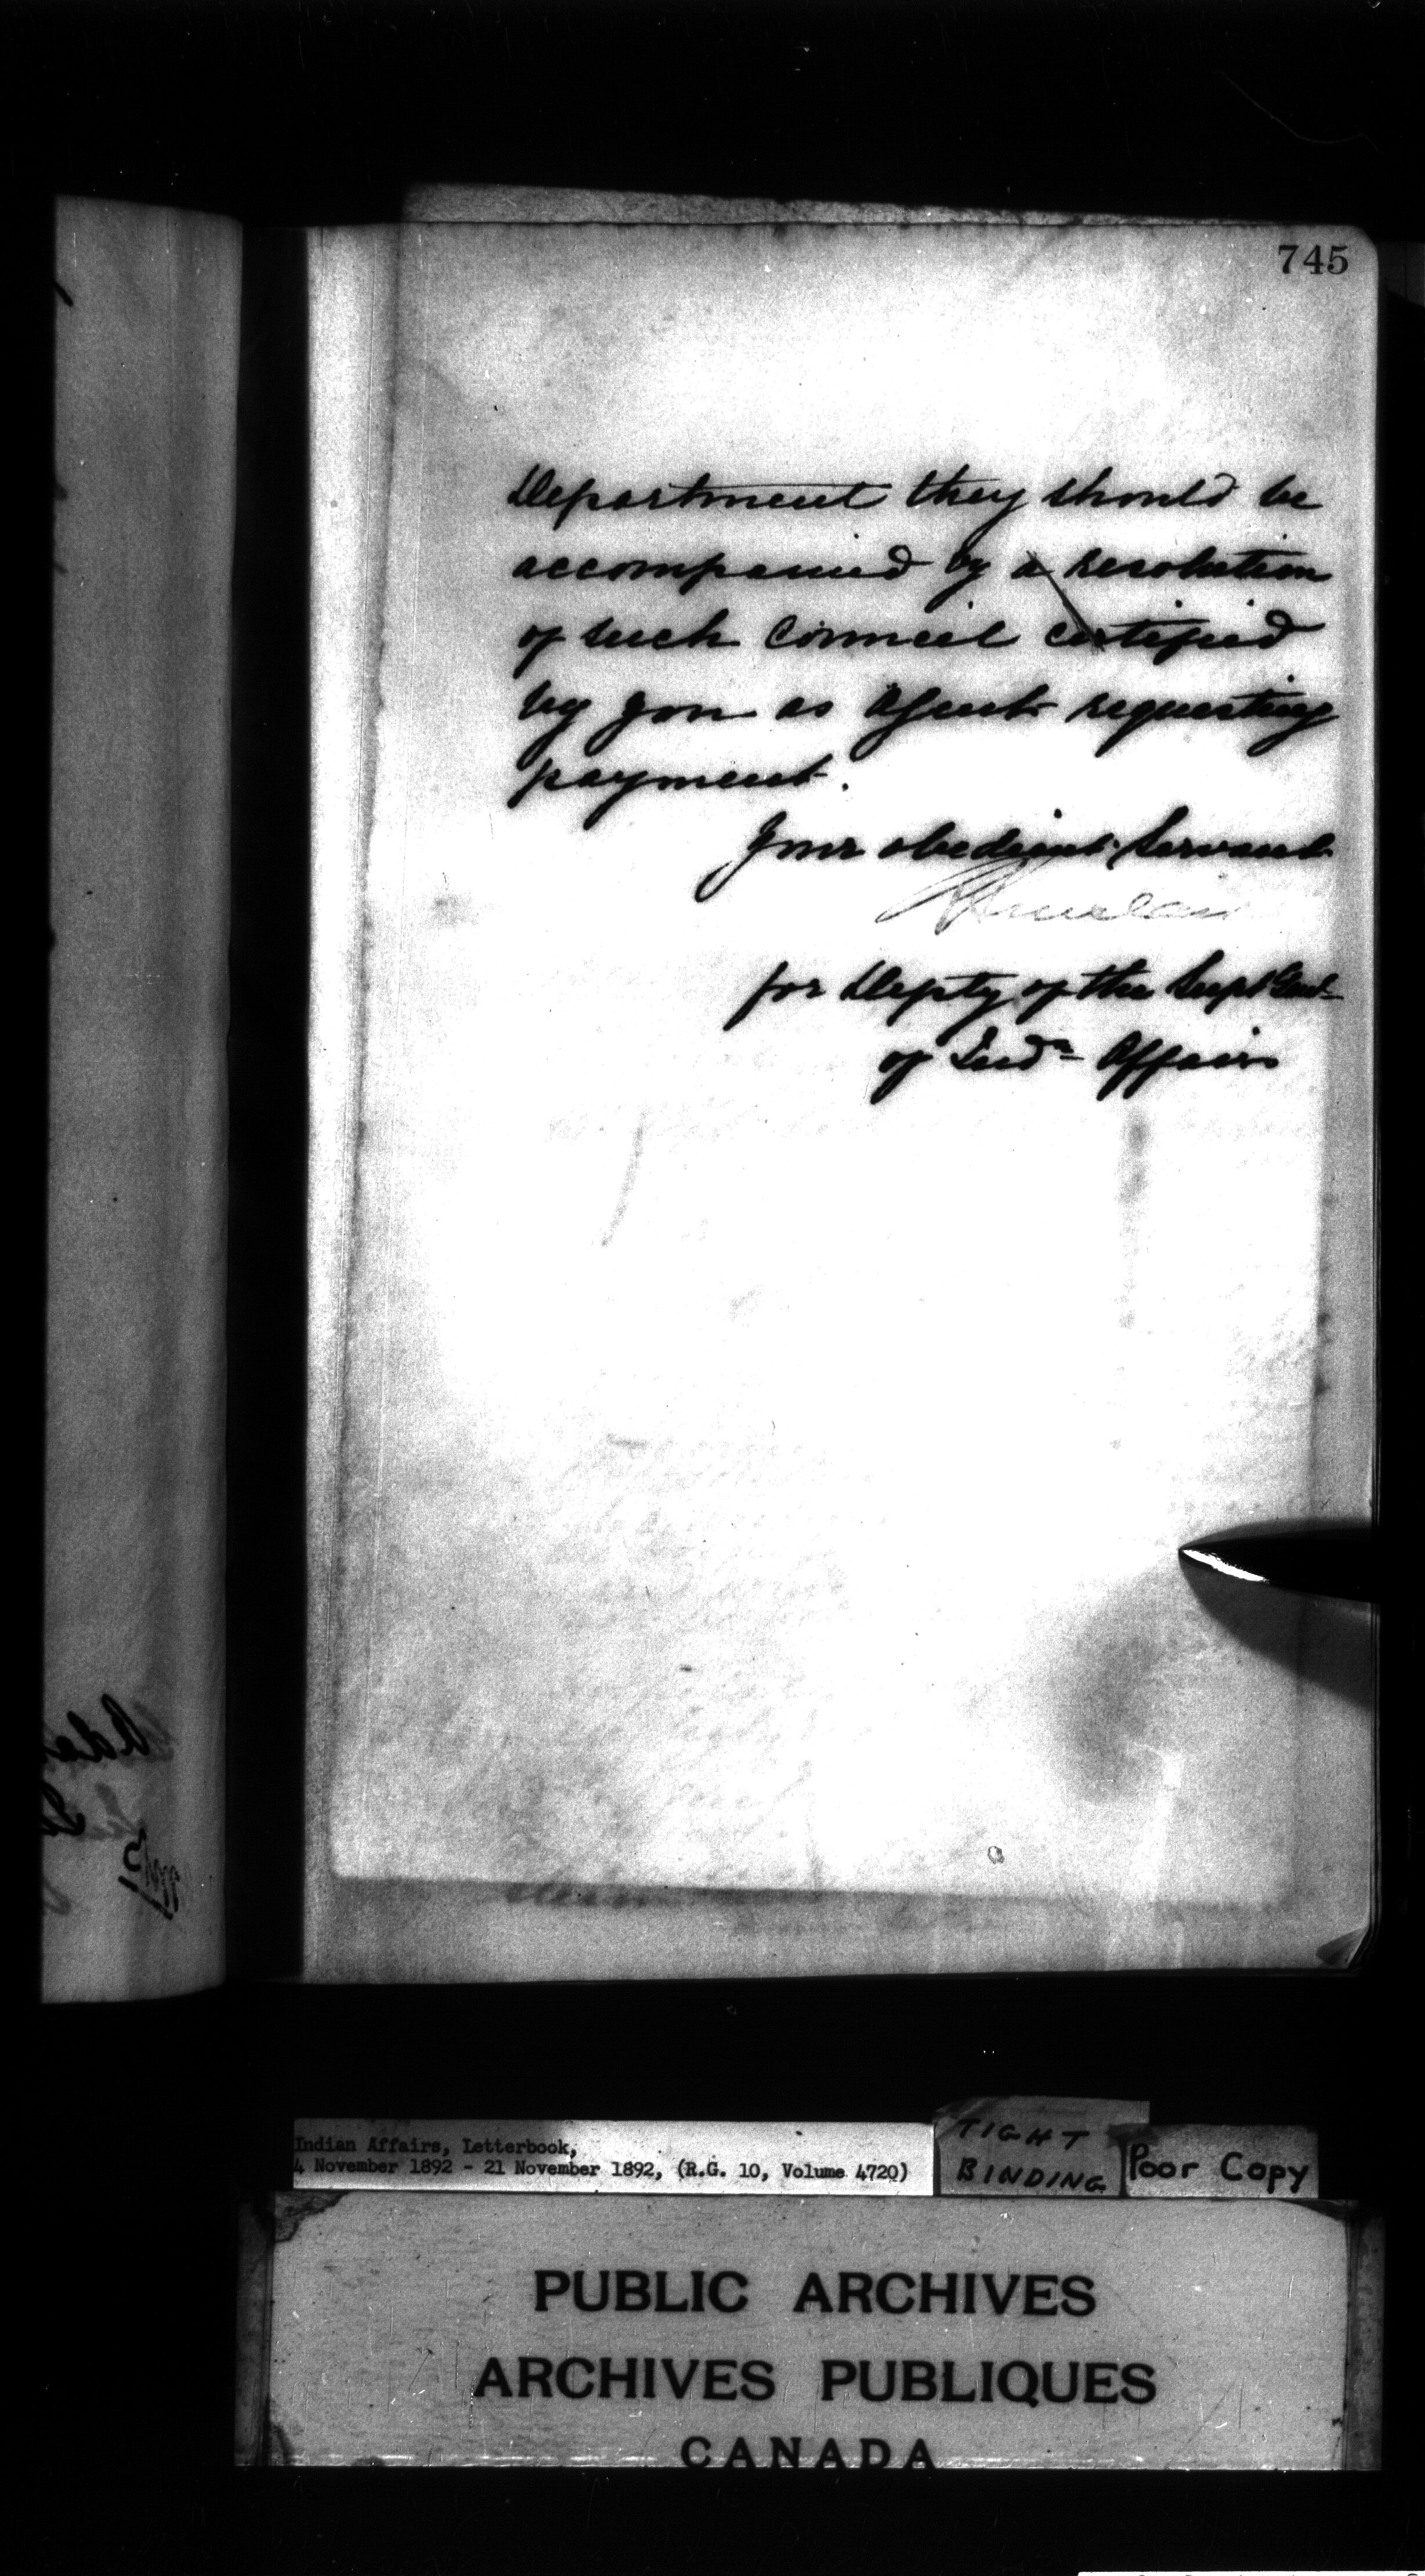 745
Department they should be
accompanied by a resolution
of such Council certified
by you as Agent requesting
payment.
Your obedient Servant
for Depty of the Supt Genl
of Indn Affairs
Indian Affairs, Letterbook,
4 November 1892 - 21 November 1892, (R.G. 10, Volume 4720)
TIGHT
BINDING
Poor Copy
PUBLIC ARCHIVES
ARCHIVES PUBLIQUES
CANADA